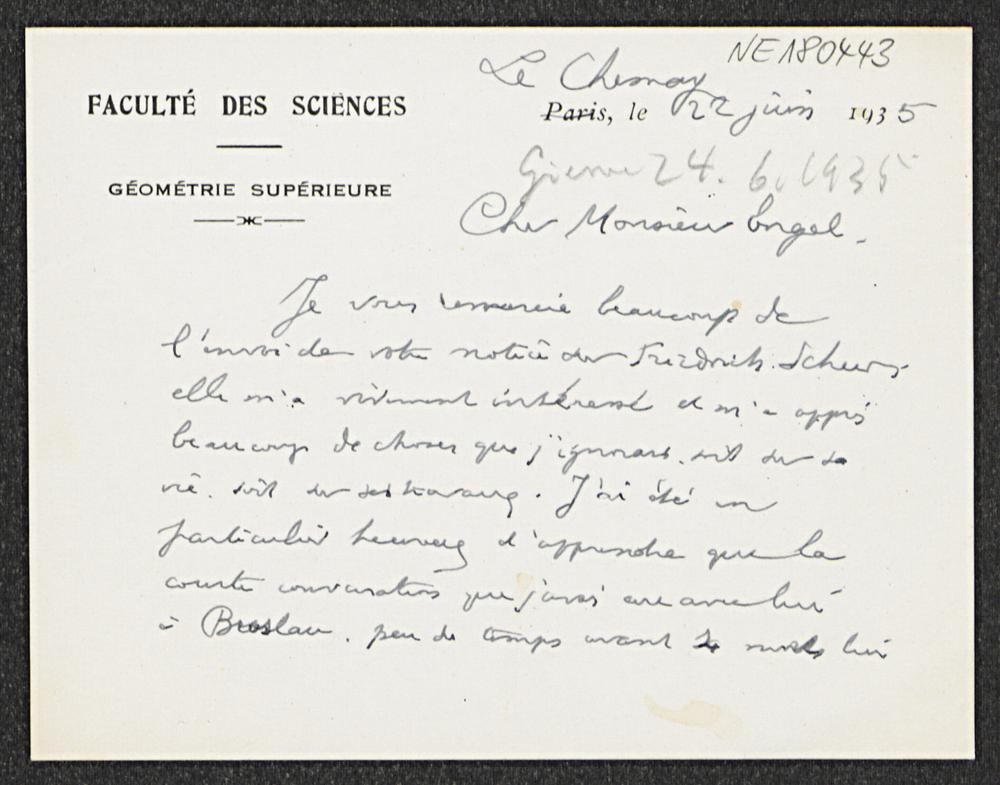 NE180443
Le Chesnay
FACULTÉ DES SCIENCES
Paris, le 22 juin 1935
GÉOMÉTRIE SUPÉRIEURE
24. 6. 1935
Cher Monsieur Engel,
Je vous remercie beaucoup de
l'envoi de votre notice sur Friedrich Schur,
elle m'a vivement intéressé et m'a appris
beaucoup de choses que j'ignorais, soit sur sa
vie, soit sur ses travaux. J'ai été en
particulier heureux d'apprendre que la
courte conversation que j'avais eue avec lui
à Breslau, peu de temps avant sa mort, lui